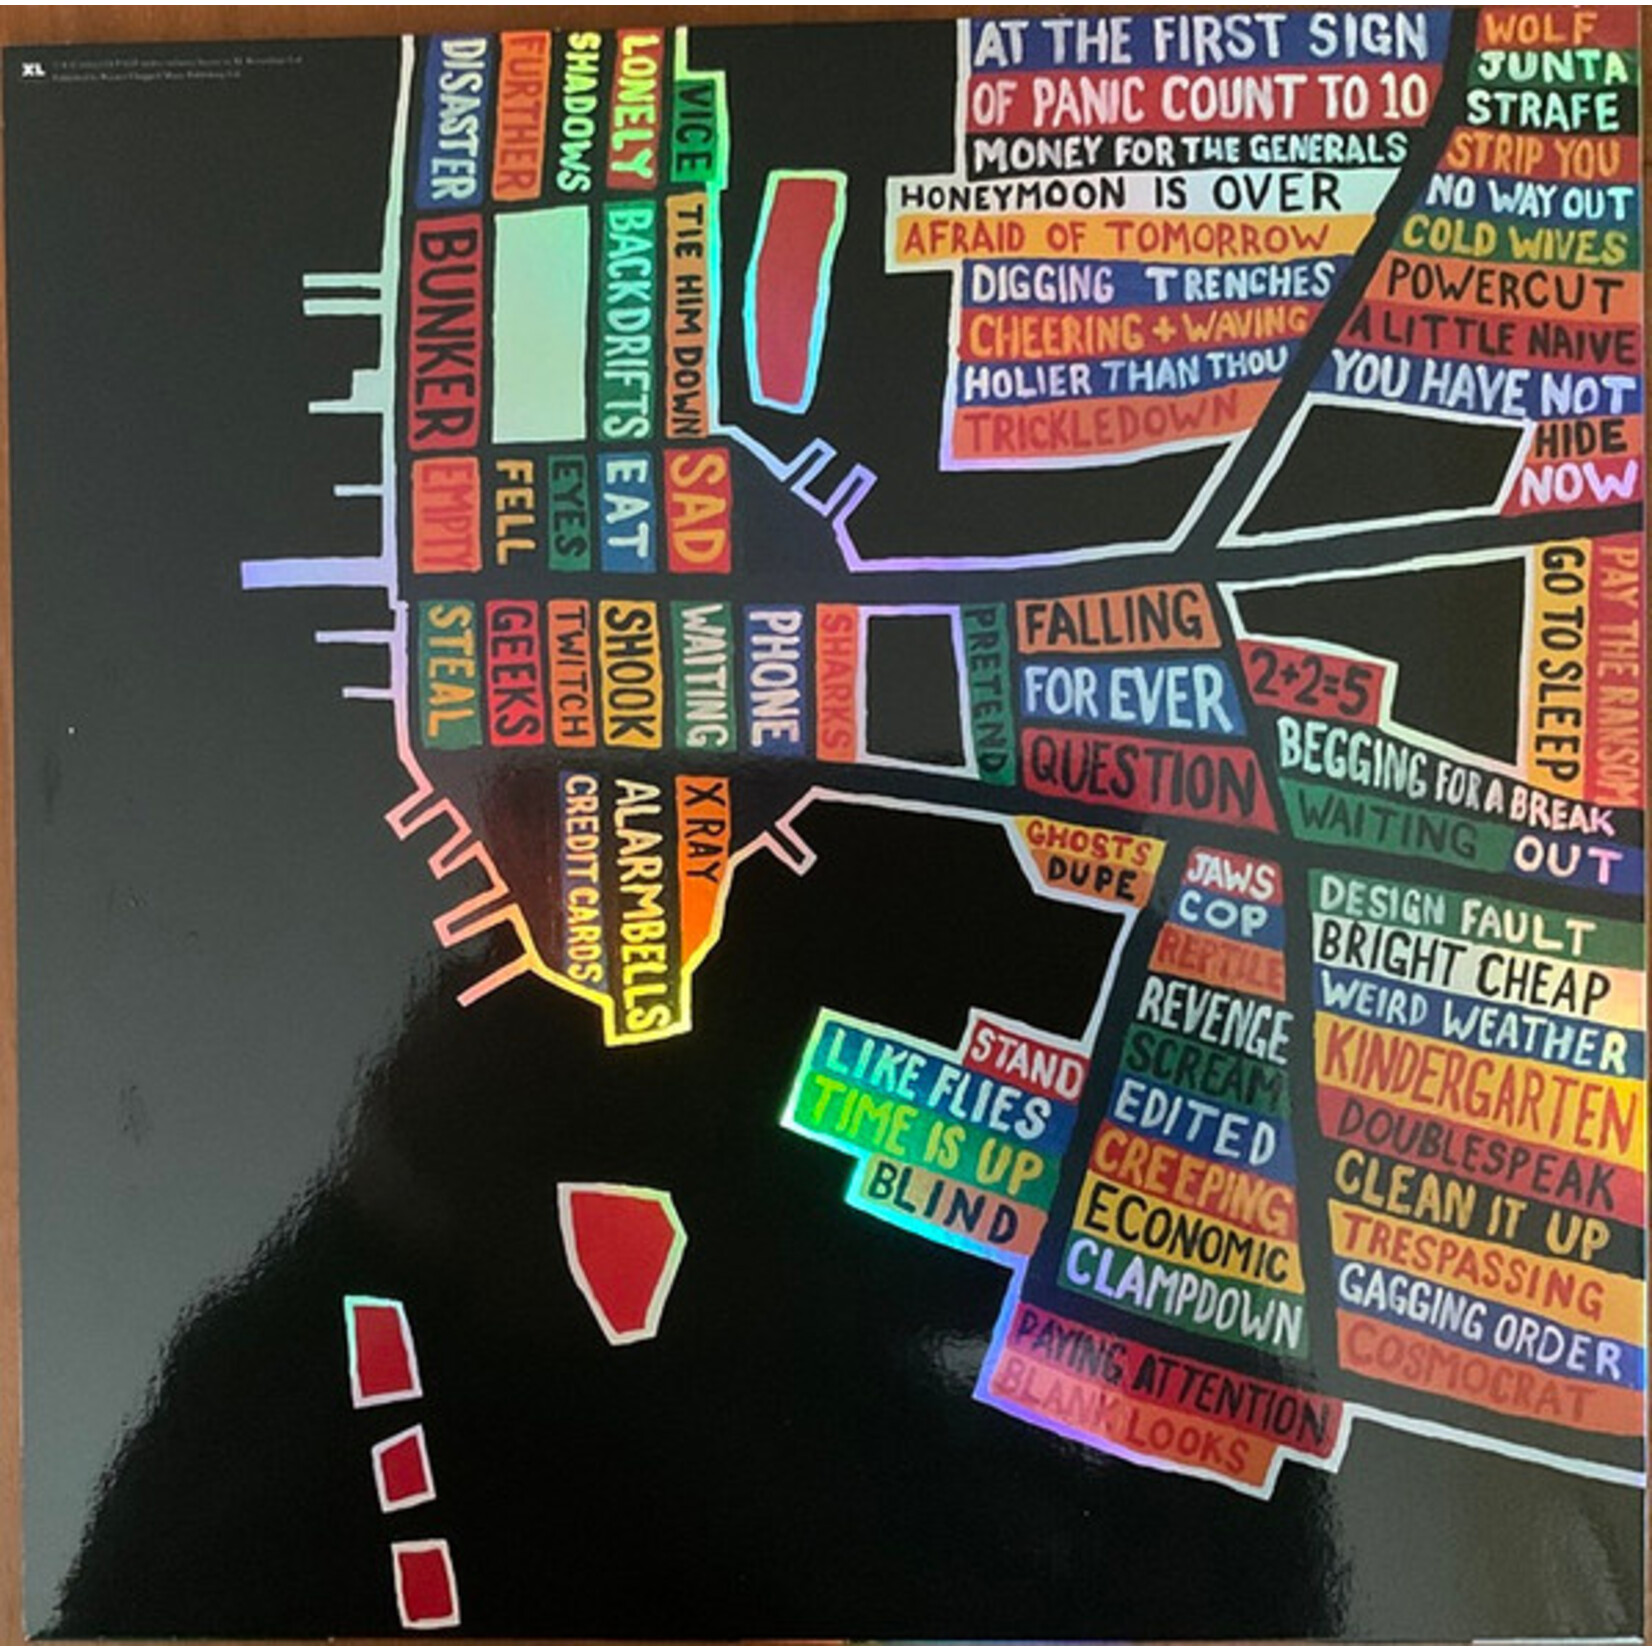 XL
DISASTER
FURTHER
SHADOWS
LONELY
VICE
BUNKER
BACKDRIFTS
TIE HIM DOWN
EMPTY
FELL
EYES
EAT
SAD
STEAL
GEEKS
TWITCH
SHOOK
WAITING
PHONE
SHARKS
PRETEND
CREDIT CARDS
ALARMBELLS
X RAY
AT THE FIRST SIGN
OF PANIC COUNT TO 10
MONEY FOR THE GENERALS
HONEYMOON IS OVER
AFRAID OF TOMORROW
DIGGING TRENCHES
CHEERING + WAVING
HOLIER THAN THOU
TRICKLEDOWN
WOLF
JUNTA
STRAFE
STRIP YOU
NO WAY OUT
COLD WIVES
POWERCUT
A LITTLE NAIVE
YOU HAVE NOT
HIDE
NOW
GO TO SLEEP
PAY THE RANSOM
FALLING
FOR EVER
QUESTION
2+2=5
BEGGING FOR A BREAK
WAITING OUT
GHOSTS
DUPE
JAWS
COP
REPTILE
REVENGE
SCREAM
EDITED
CREEPING
ECONOMIC
CLAMPDOWN
PAYING ATTENTION
BLANK LOOKS
STAND
LIKE FLIES
TIME IS UP
BLIND
DESIGN FAULT
BRIGHT CHEAP
WEIRD WEATHER
KINDERGARTEN
DOUBLESPEAK
CLEAN IT UP
TRESPASSING
GAGGING ORDER
COSMOCRAT